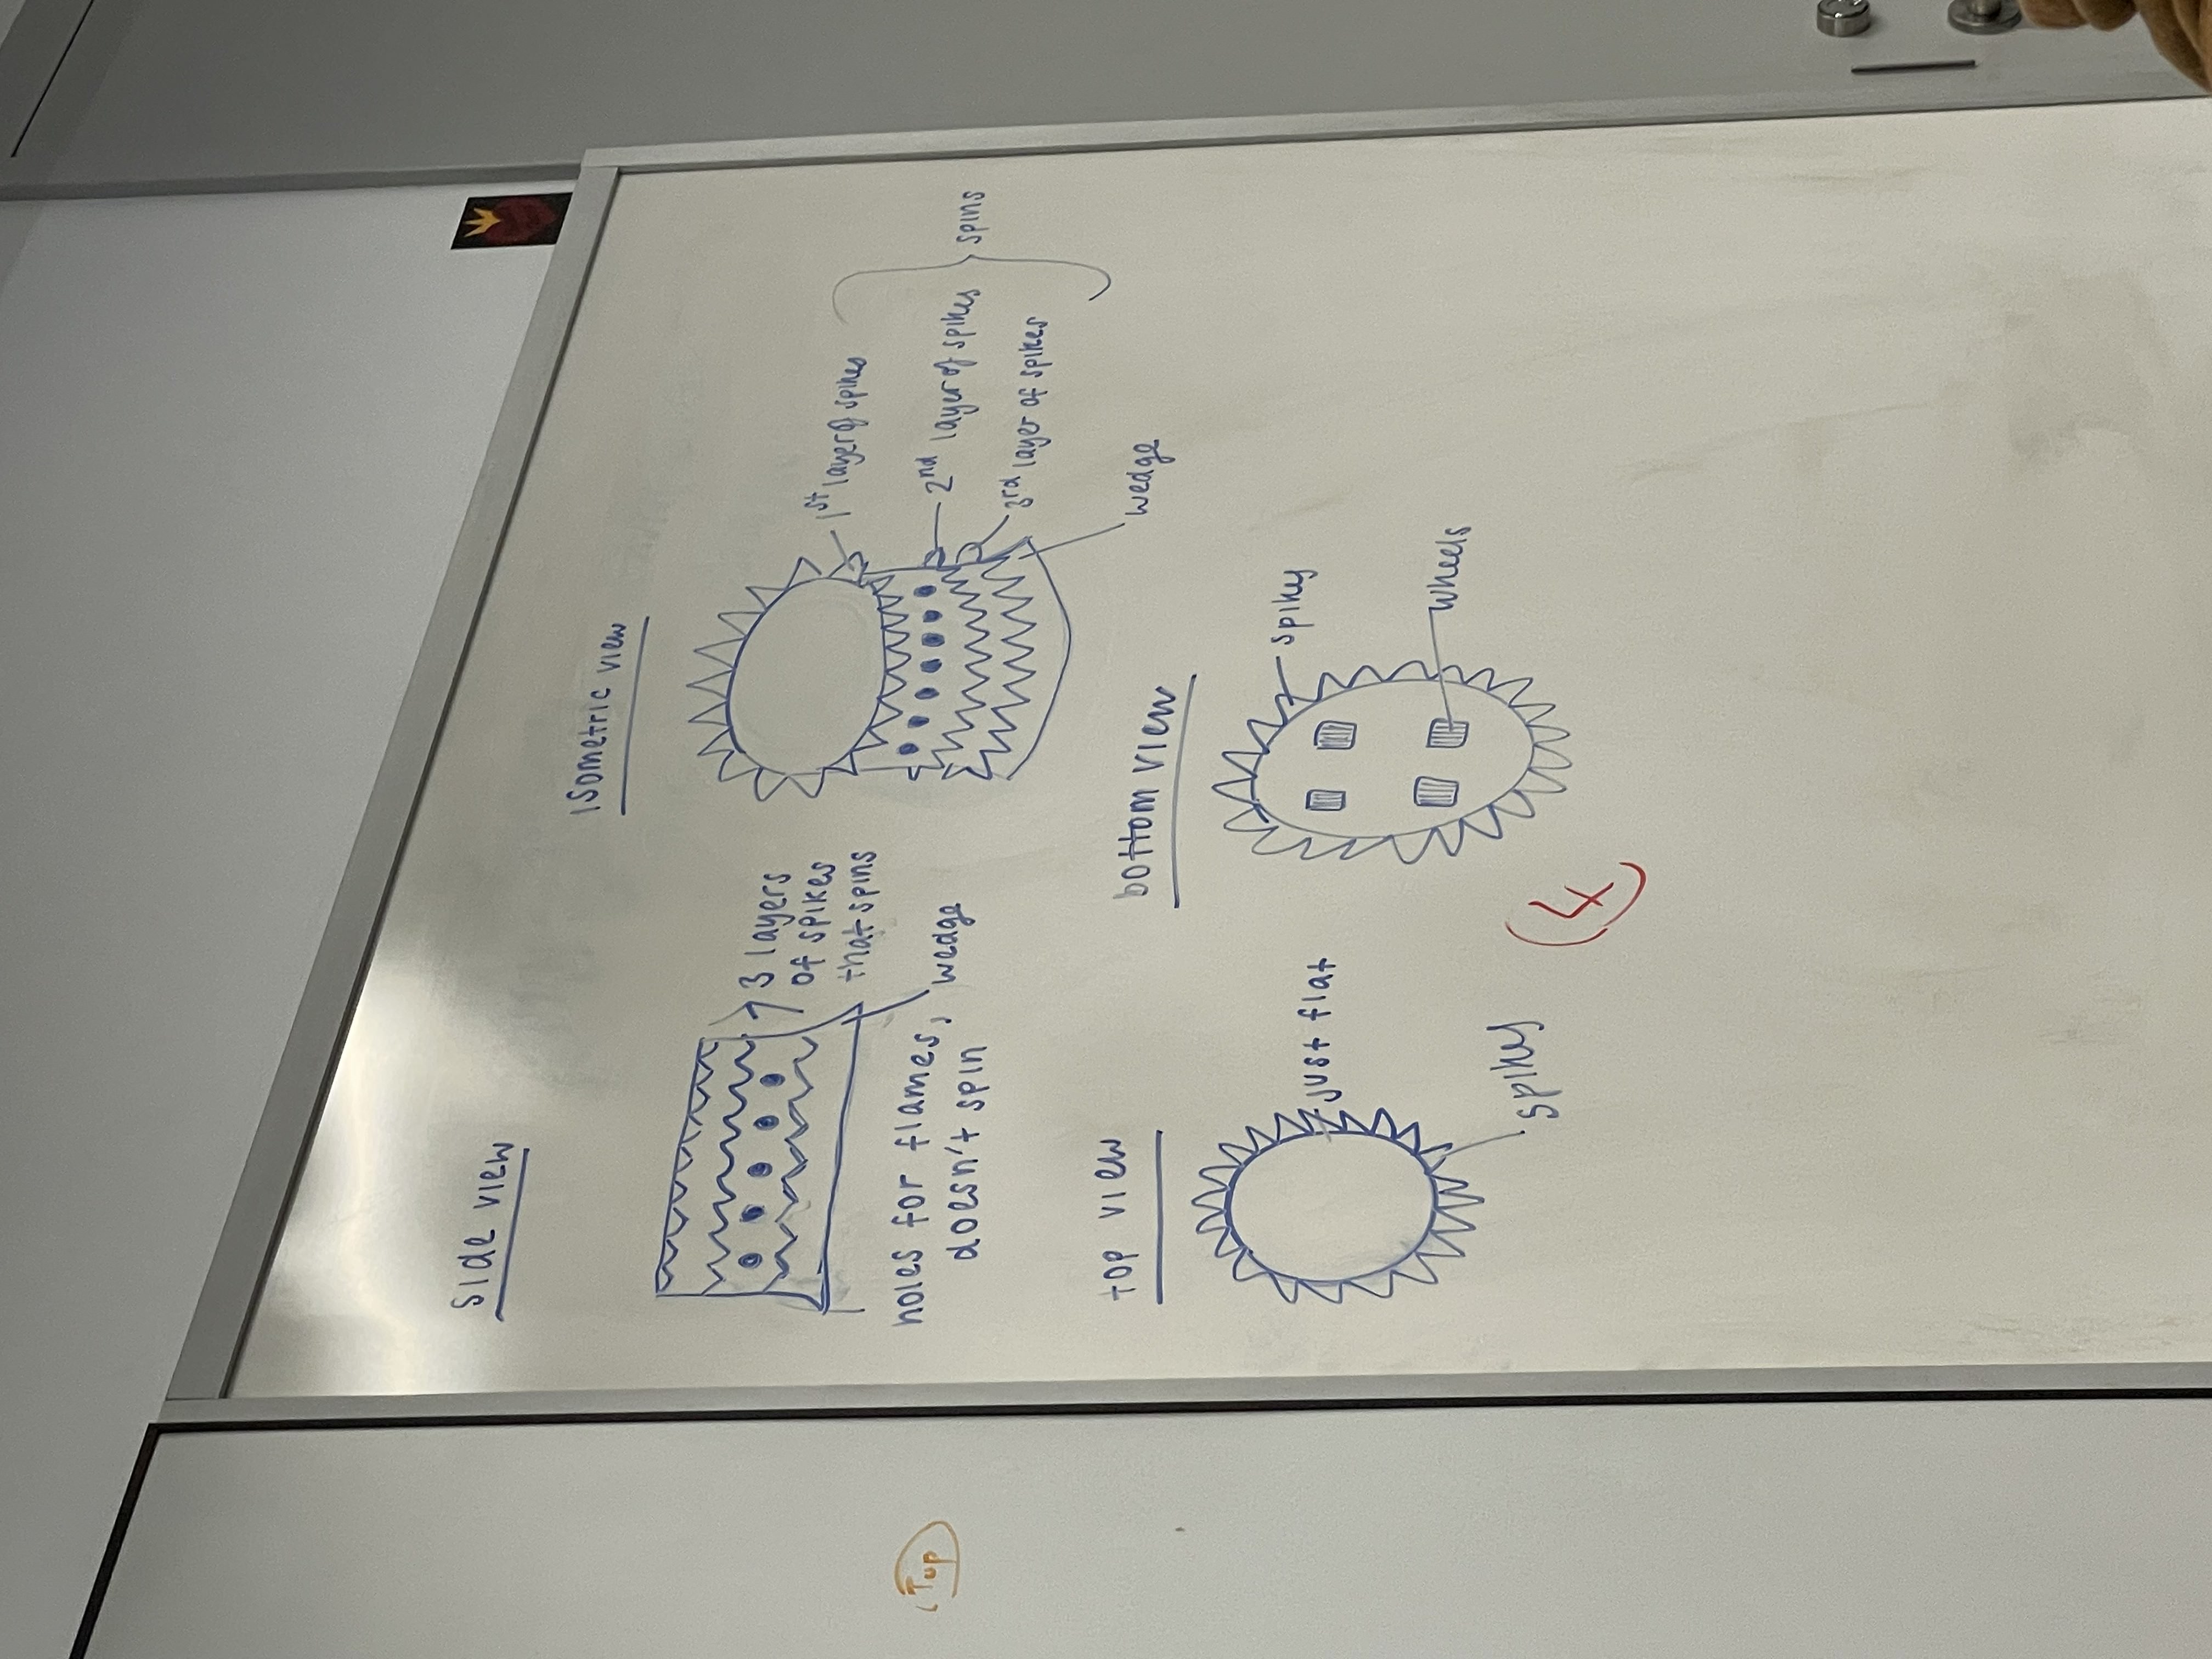 side view
isometric view
3 layers
of spikes
that spins
holes for flames,
doesn't spin
wedge
1st layer of spikes
2nd layer of spikes
3rd layer of spikes
spins
wedge
Top
top view
just flat
spikes
bottom view
spikes
wheels